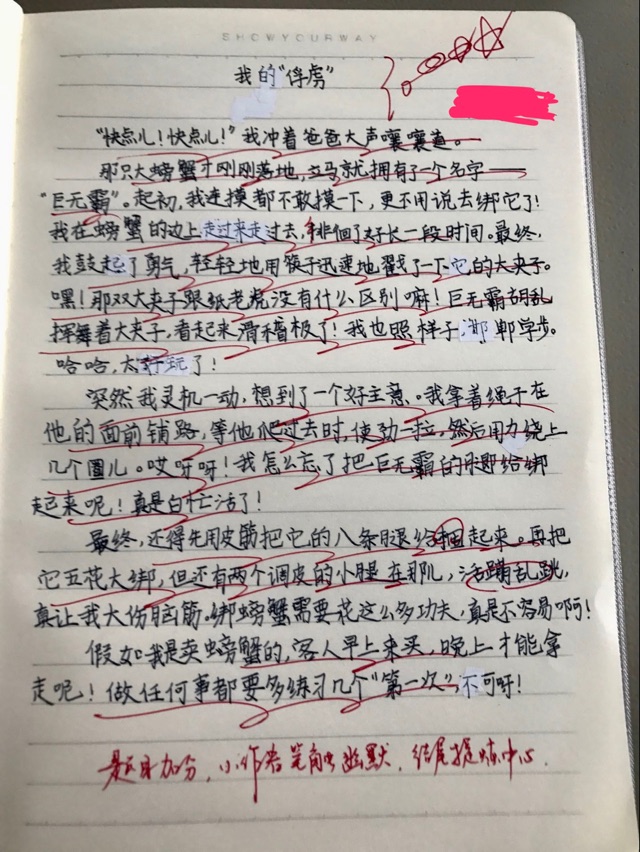 SHOWYOURWAY
我的“俘虏”
“快点儿！快点儿！”我冲着爸爸大声嚷嚷道。
那只大螃蟹才刚刚落地，立马就拥有了一个名字——
“巨无霸”。起初，我连摸都不敢摸一下，更不用说去绑它了！
我在螃蟹的边上走过来走过去，徘徊了好长一段时间。最终，
我鼓起了勇气，轻轻地用筷子迅速地戳了一下它的大夹子。
嘿！那双大夹子跟纸老虎没有什么区别嘛！巨无霸胡乱
挥舞着大夹子，看起来滑稽极了！我也照样子，邯郸学步。
哈哈，太好玩了！
突然我灵机一动，想到了一个好主意。我拿着绳子在
他的面前铺路，等他爬过去时，使劲一拉，然后用力绕上
几个圈儿。哎呀呀！我怎么忘了把巨无霸的腿给绑
起来呢！真是白忙活了！
最终，还得先用皮筋把它的八条腿给捆起来。再把
它五花大绑，但还有两个调皮的小腿在那儿，活蹦乱跳，
真让我大伤脑筋。绑螃蟹需要花这么多功夫，真是不容易啊！
假如我是卖螃蟹的，客人早上来买，晚上才能拿
走呢！做任何事都要多练习几个“第一次”，不可呀！
题目加分，小作者笔触幽默，结尾提炼中心．